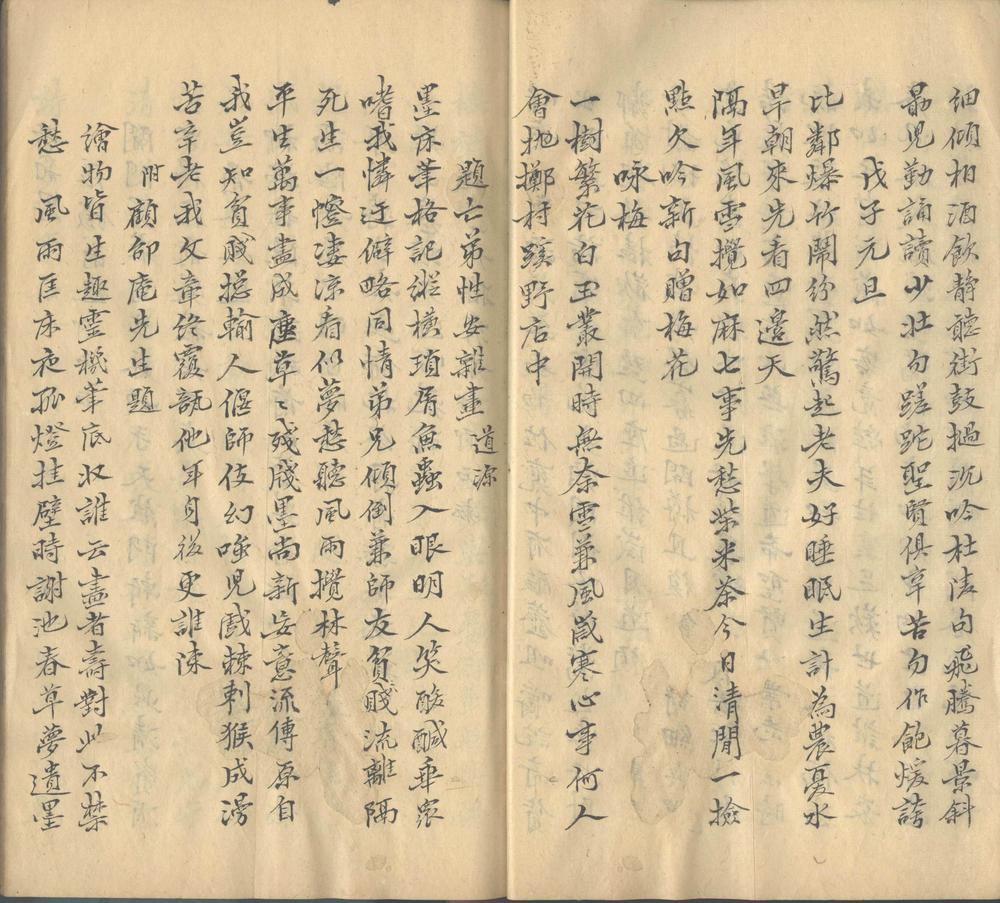 細傾柏酒飲靜聽街鼓撾沉吟杜陵句飛騰暮景斜
勗兒勤誦讀少壯勿蹉跎聖賢俱辛苦勿作飽煖誇
戊子元旦
比鄰爆竹鬧紛然驚起老夫好睡眠生計為農憂水
旱朝來先看四邊天
隔年風雪攪如麻七事先愁柴米茶今日清閒一撿
點欠吟新句贈梅花
咏梅
一樹繁花白玉叢開時無奈雪兼風歲寒心事何人
會抛擲村蹊野店中
題亡弟性安雜畫 道源
墨床筆格記縱橫瑣屑魚蟲入眼明人笑酸鹹乖衆
嗜我憐迂僻略同情弟兄傾倒兼師友貧賤流離隔
死生一憶凄涼看似夢愁聽風雨攪林聲
平生萬事盡成塵草〻殘牋墨尚新妄意流傳原自
我豈知貧賤摠輸人偃師伎幻嗤兒戲棘刺猴成澇
苦辛老我文章終覆瓿他年身後更誰陳
附顧卲庵先生題
繪物皆生趣靈機筆底收誰云畫者壽對此不禁
愁風雨匡床夜孤燈挂壁時謝池春草夢遺墨